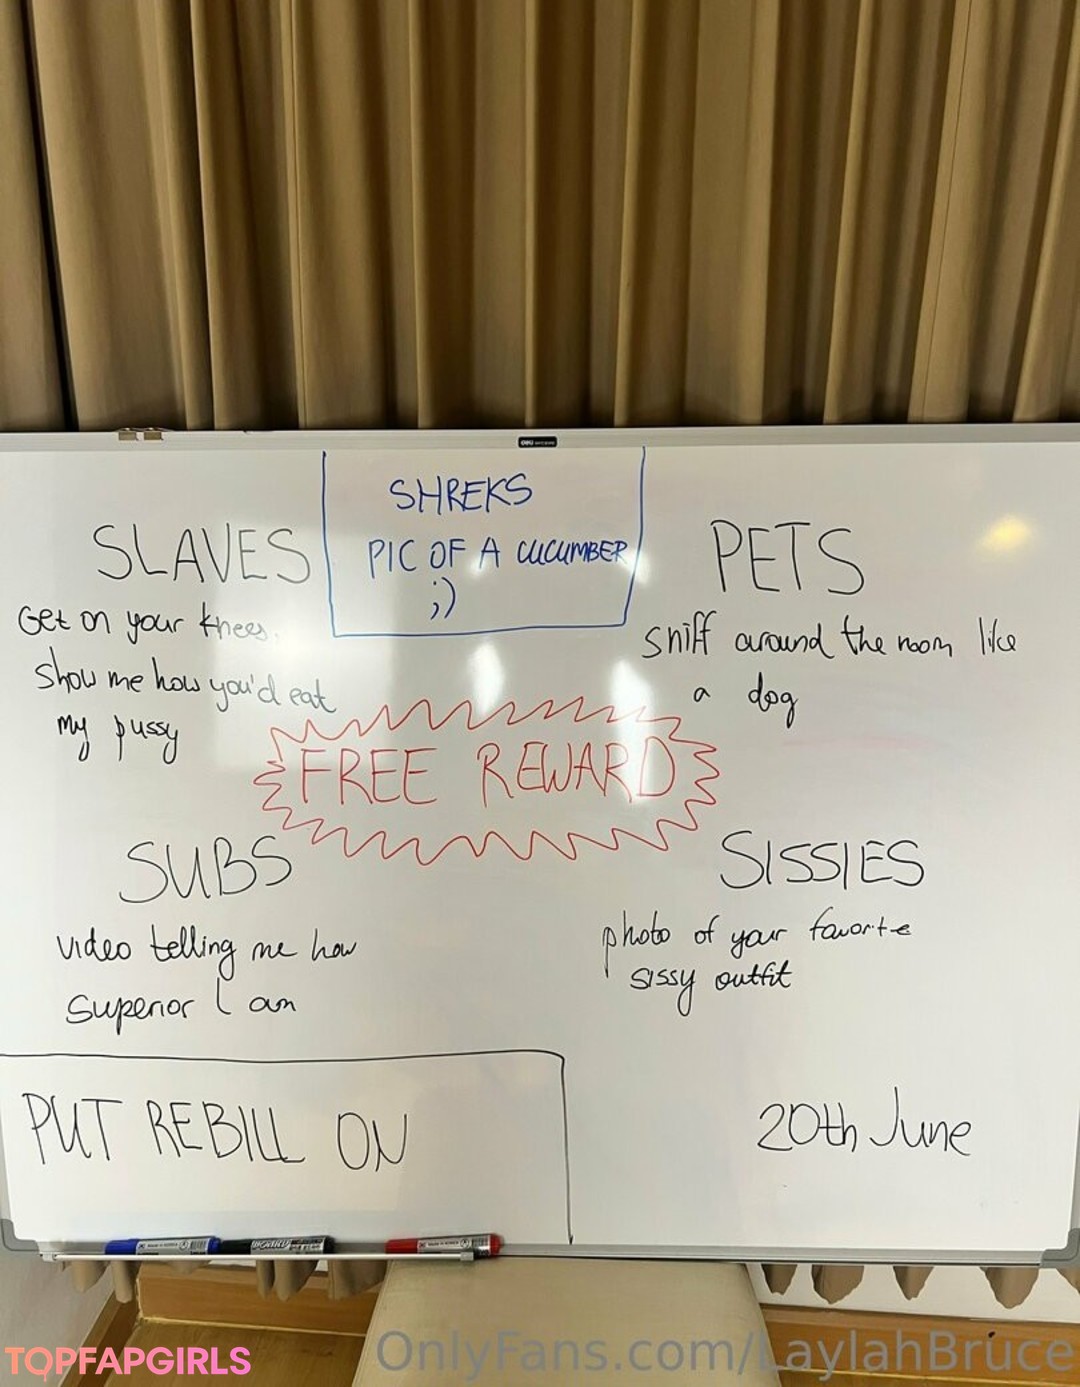 deli
SHREKS
PIC OF A CUCUMBER
;)
SLAVES
Get on your knees.
Show me how you'd eat
my pussy
PETS
sniff around the room like
a dog
FREE REWARD
SUBS
video telling me how
superior I am
SISSIES
photo of your favorite
sissy outfit
PUT REBILL ON
20th June
TOPFAPGIRLS
OnlyFans.com/LaylahBruce